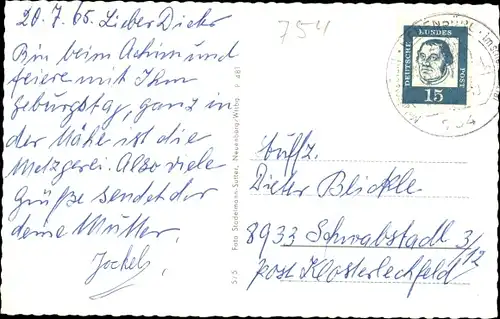 20.7.65. Lieber Dieter
Bin beim Achim und
feiere mit Ihm
Geburtstag, ganz in
der Nähe ist die
Metzgerei. Also viele
Grüße sendet der
deine Mutter,
Jockel,
754
DEUTSCHE BUNDES POST
15
5/5 Foto Stadelmann-Sutter, Neuenbürg/Württbg.
Luftz.
Dieter Blickle
8933 Schwabstadl 3/12
Post Klosterlechfeld